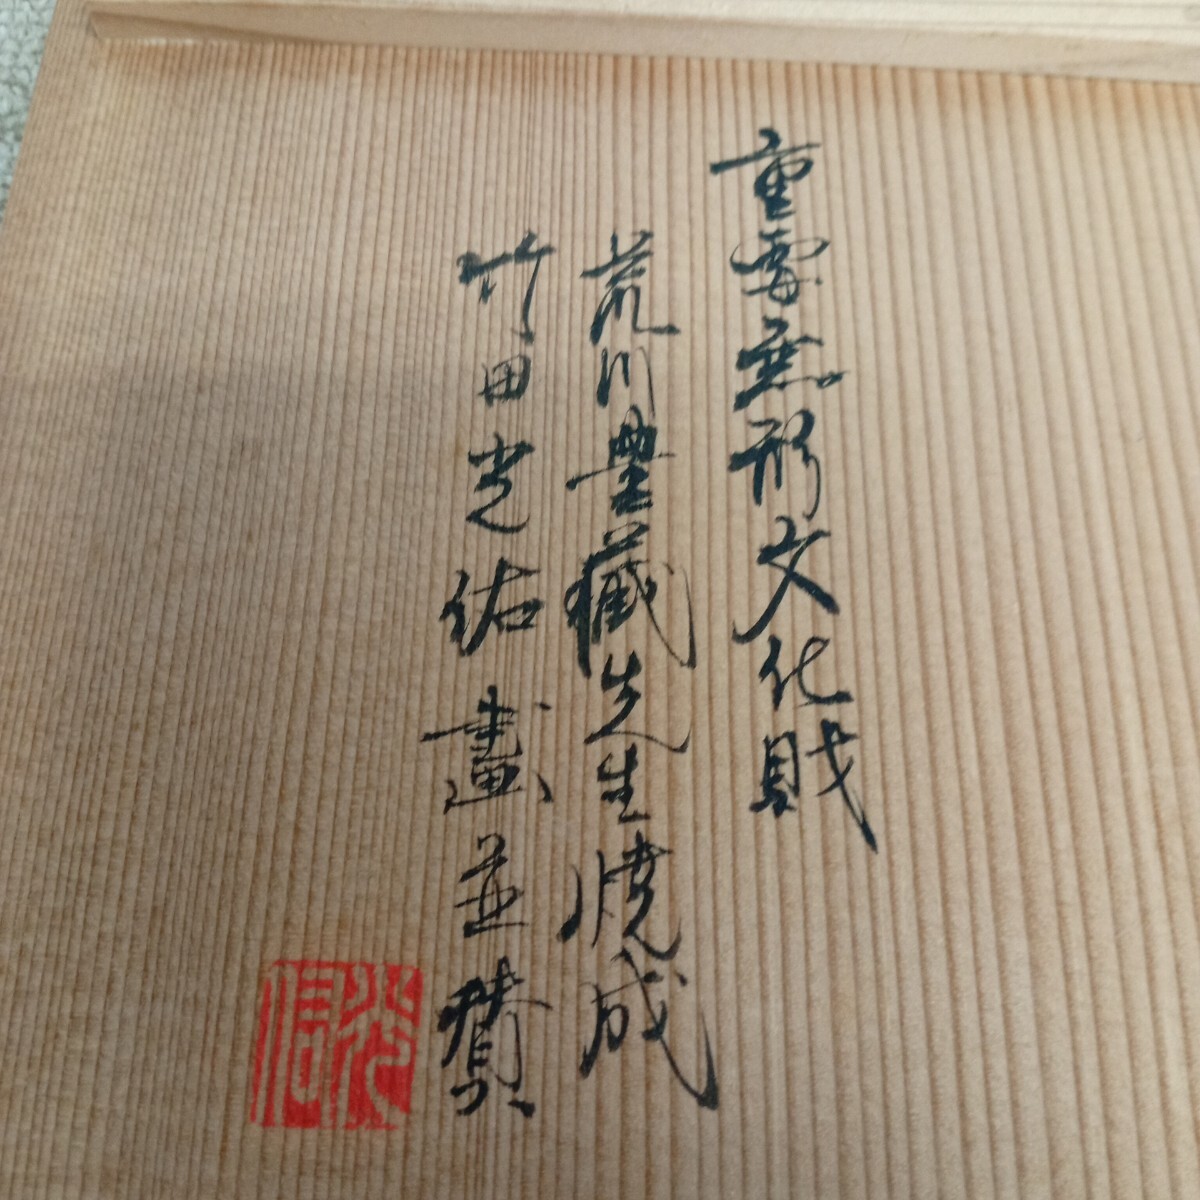 重要無形文化財
荒川豊藏先生焼成
竹田光佑畫並賛
光信